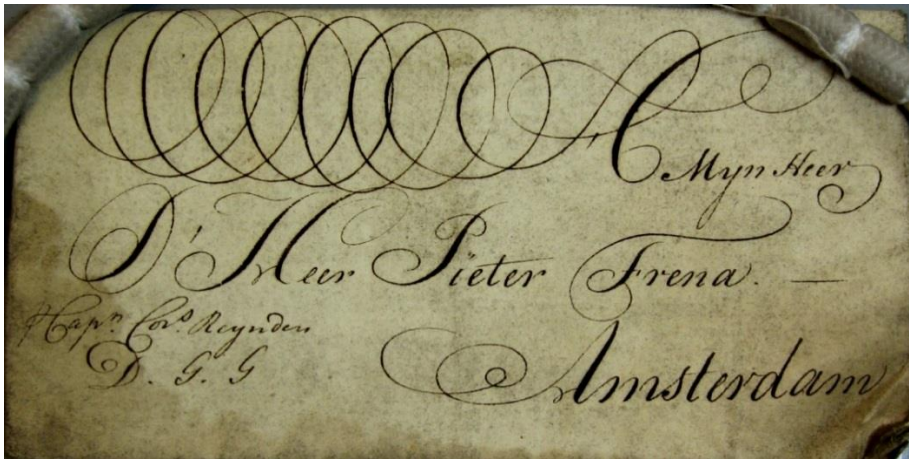 Myn Heer
D' Heer Pieter Frena. —
Capn. Cors. Reynders
D. G. G
Amsterdam